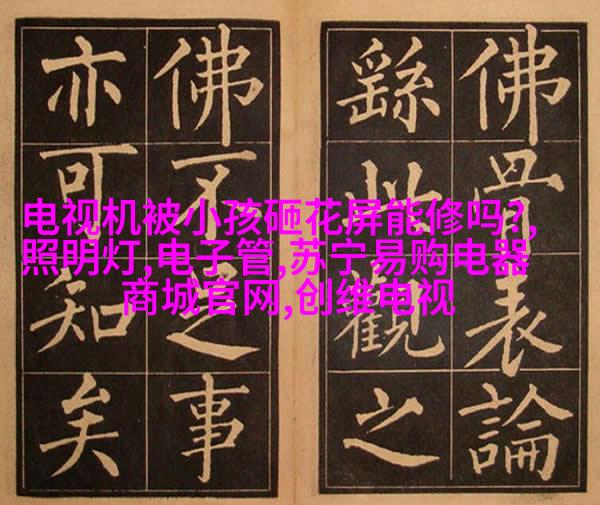 佛骨表論
繇此觀之
佛不足事
亦可知矣
电视机被小孩砸花屏能修吗?,
照明灯,电子管,苏宁易购电器
商城官网,创维电视